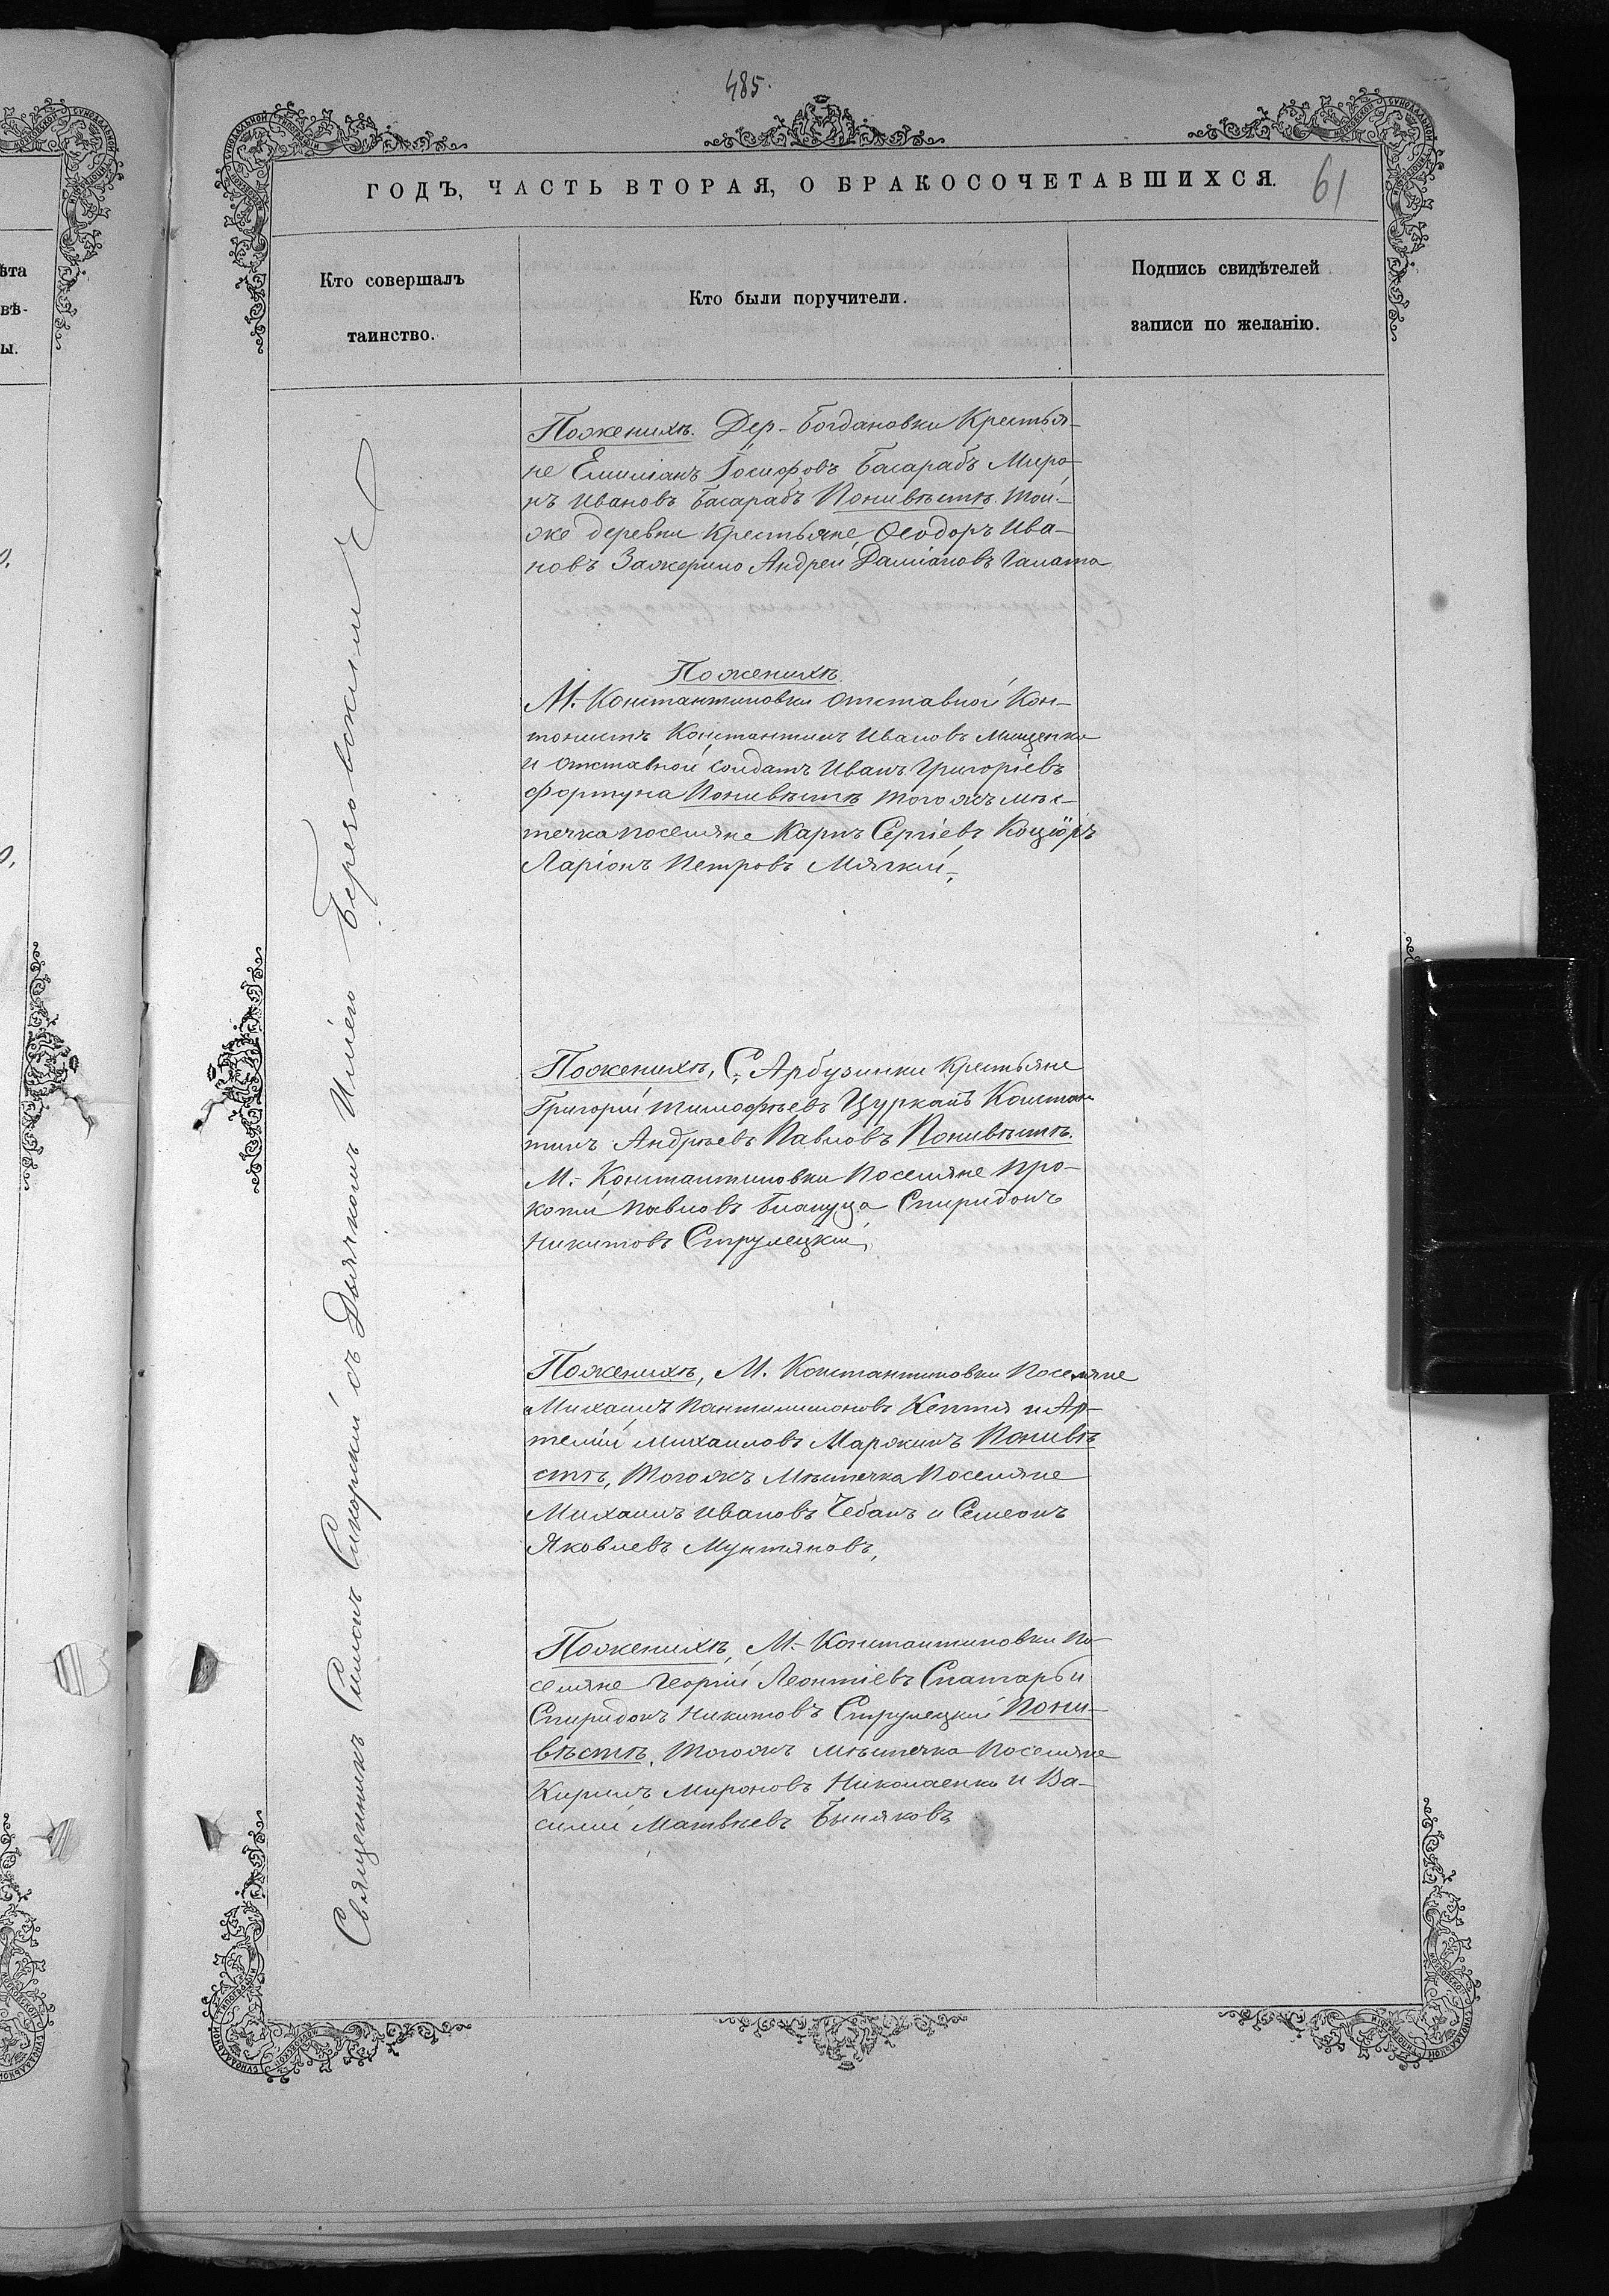 485.
61
ГОДЪ, ЧАСТЬ ВТОРАЯ, О БРАКОСОЧЕТАВШИХСЯ.
Кто совершалъ
таинство.
Кто были поручители.
Подпись свидѣтелей
записи по желанію.
Священникъ Симонъ Сикорскій съ Дьячкомъ Иліею Березовскимъ
Поженихѣ. Дер- Богдановки Крестья-
не Емиліанъ Іосифовъ Басарабъ Миро-
нъ Ивановъ Басарабъ Поневѣстѣ. Той-
же деревни Крестьяне Ѳеодоръ Ива-
новъ Андрей Даміановъ Галата
Поженихѣ
М. Константиновки Отставной Кан-
тонистъ Константинъ Ивановъ Мищенко
и Отставной солдатъ Иванъ Григоріевъ
Фортуна Поневѣстѣ Тогожъ мѣс-
течка поселяне Карпъ Сергіевъ Коцюръ
Ларіонъ Петровъ Мягкій,
Поженихѣ, С. Арбузинки Крестьяне
Григорій Тимофѣевъ Цурканъ Констан
тинъ Андрѣевъ Павловъ Поневѣстѣ.
М.- Константиновки Поселяне Про-
копій Павловъ Спиридонъ
Никитовъ Струлецкій,
Поженихѣ, М. Константиновки Поселяне
Михаилъ Пантилимоновъ Кептя и Ар-
темій Михаиловъ Маржинъ Поневѣ
стѣ, Тогожъ Мѣстечка Поселяне
Михаилъ Ивановъ Чебанъ и Семеонъ
Яковлевъ Мунтяновъ,
Поженихѣ, М.- Константиновки По-
селяне Георгій Леонтіевъ Спатарь и
Спиридонъ Никитовъ Струлецкій Поне-
вѣстѣ, Тогожъ мѣстечка Поселяне
Кирилъ Мироновъ Николаенко и Ва-
силій Матвѣевъ Быняковъ
ѣта
вѣ-
ы.